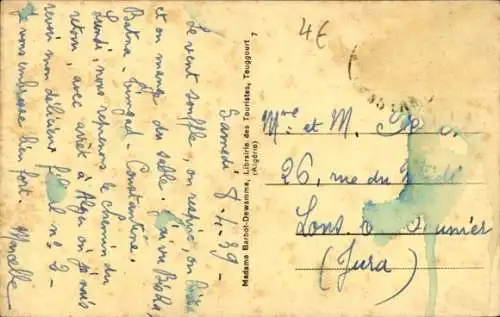 Samedi 8-4-39 -
Le vent souffle, on respire, on
et on mange du sable. J'ai vu Biskra,
Batna - Timgad - Constantine.
Lundi, nous reprenons le chemin du
retour, avec arrêt à Alger où j'irai
revoir mon délicieux
Je vous embrasse bien fort. Marcelle
Madame Barbot-Dewamme, Librairie des Touristes, Touggourt
(Algérie)
4€
Mme et M.
26, rue du
Lons Saunier
(Jura)